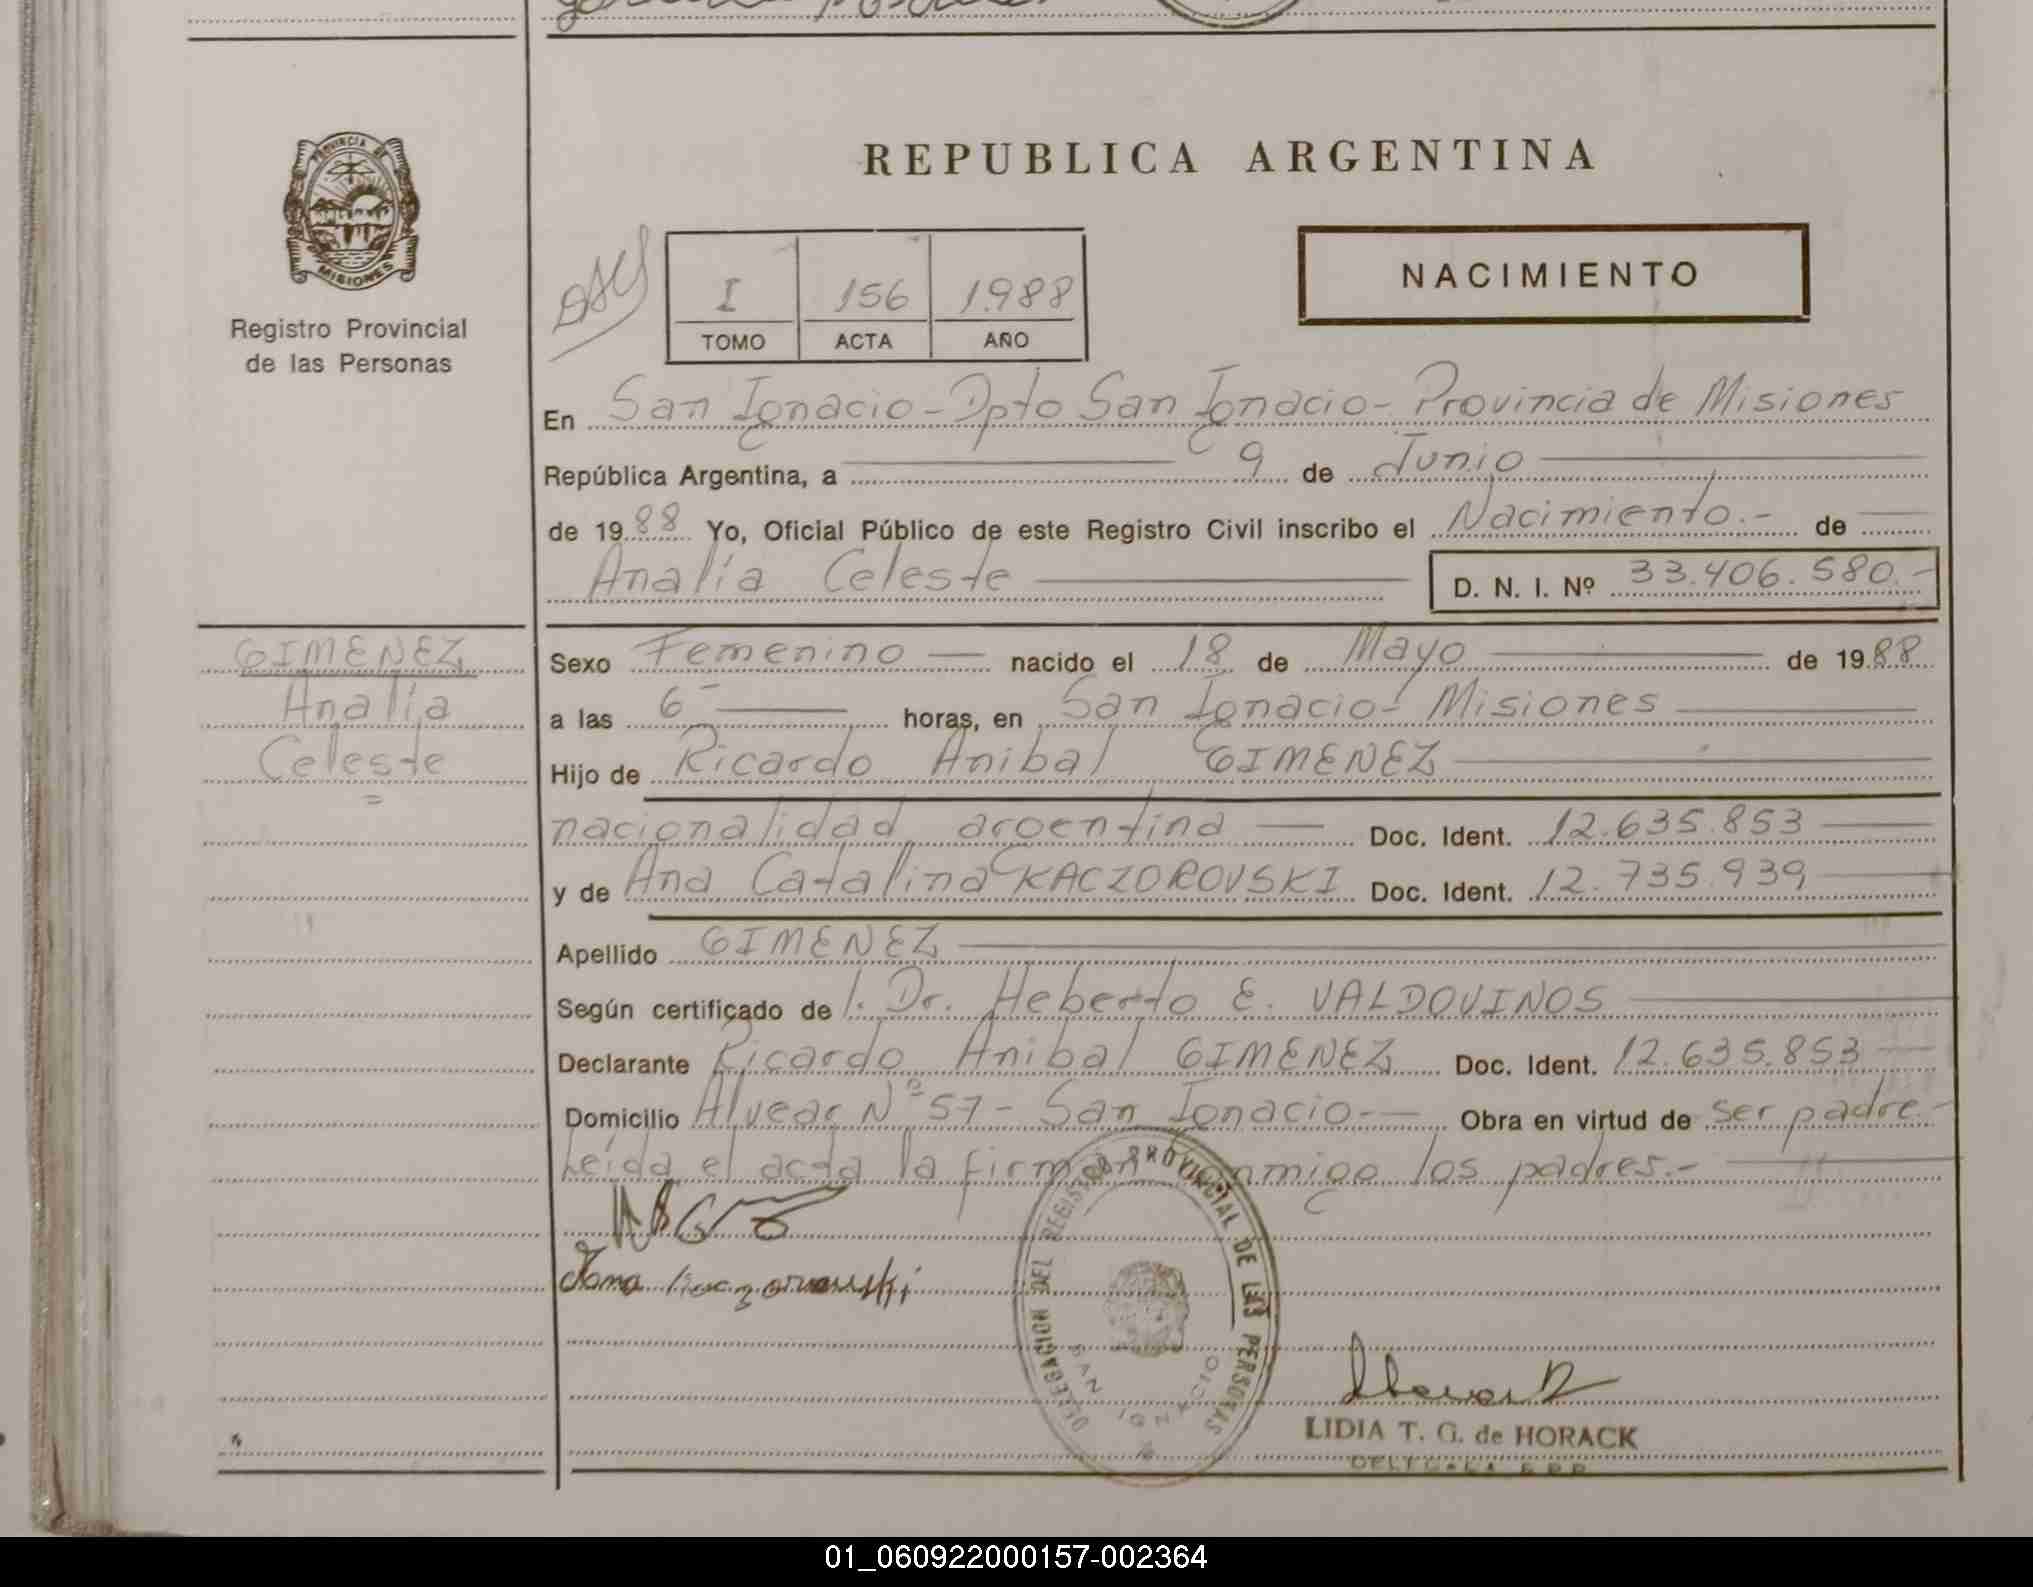 PROVINCIA DE
MISIONES
Registro Provincial
de las Personas
REPUBLICA ARGENTINA
NACIMIENTO
I 156 1988
TOMO ACTA AÑO
En San Ignacio - Dpto San Ignacio - Provincia de Misiones
República Argentina, a 9 de Junio
de 1988 Yo, Oficial Público de este Registro Civil inscribo el Nacimiento.- de
Analía Celeste D. N. I. Nº 33.406.580.-
GIMENEZ
Analía
Celeste
Sexo Femenino nacido el 18 de Mayo de 1988
a las 6 horas, en San Ignacio - Misiones
Hijo de Ricardo Anibal GIMENEZ
nacionalidad argentina Doc. Ident. 12.635.853
y de Ana Catalina KACZOROVSKI Doc. Ident. 12.735.939
Apellido GIMENEZ
Según certificado de l. Dr. Heberto E. VALDOVINOS
Declarante Ricardo Anibal GIMENEZ Doc. Ident. 12.635.853
Domicilio Alvear Nº 57 - San Ignacio.- Obra en virtud de ser padre.-
Leída el acta la firman conmigo los padres.-
DELEGACION DEL REGISTRO PROVINCIAL DE LAS PERSONAS
SAN IGNACIO
LIDIA T. G. de HORACK
01_060922000157-002364